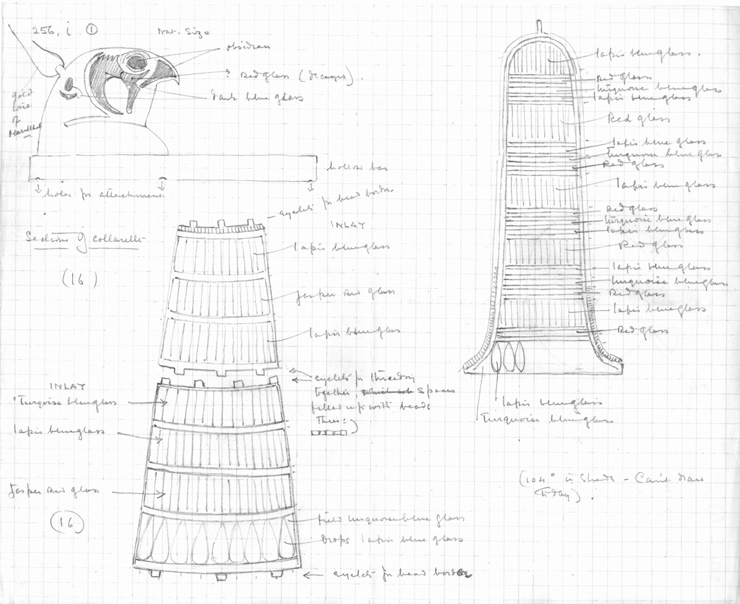 256, i. ①
Nat. Size
obsidian
? Red glass (decayed).
Dark blue glass
gold
wire
of
hollow bar
holes for attachment
eyelets for bead border
Sections of Collarette
(16)
INLAY
lapis blue glass
Jasper and glass
lapis blue glass
eyelets for threading
together, spaces
filled up with beads
thus:
INLAY
Turquoise blue glass
lapis blue glass
Jasper and glass
(16)
field turquoise blue glass
Drops lapis blue glass
eyelets for bead border
lapis blue glass.
Red glass
turquoise blue glass
lapis blue glass
Red glass
lapis blue glass
Turquoise blue glass
Red glass
lapis blue glass
Red glass
turquoise blue glass
lapis blue glass
Red glass
lapis blue glass
turquoise blue glass
Red glass
lapis blue glass
Red glass
lapis blue glass
Turquoise blue glass
(104° in Shade - Can't draw
today).